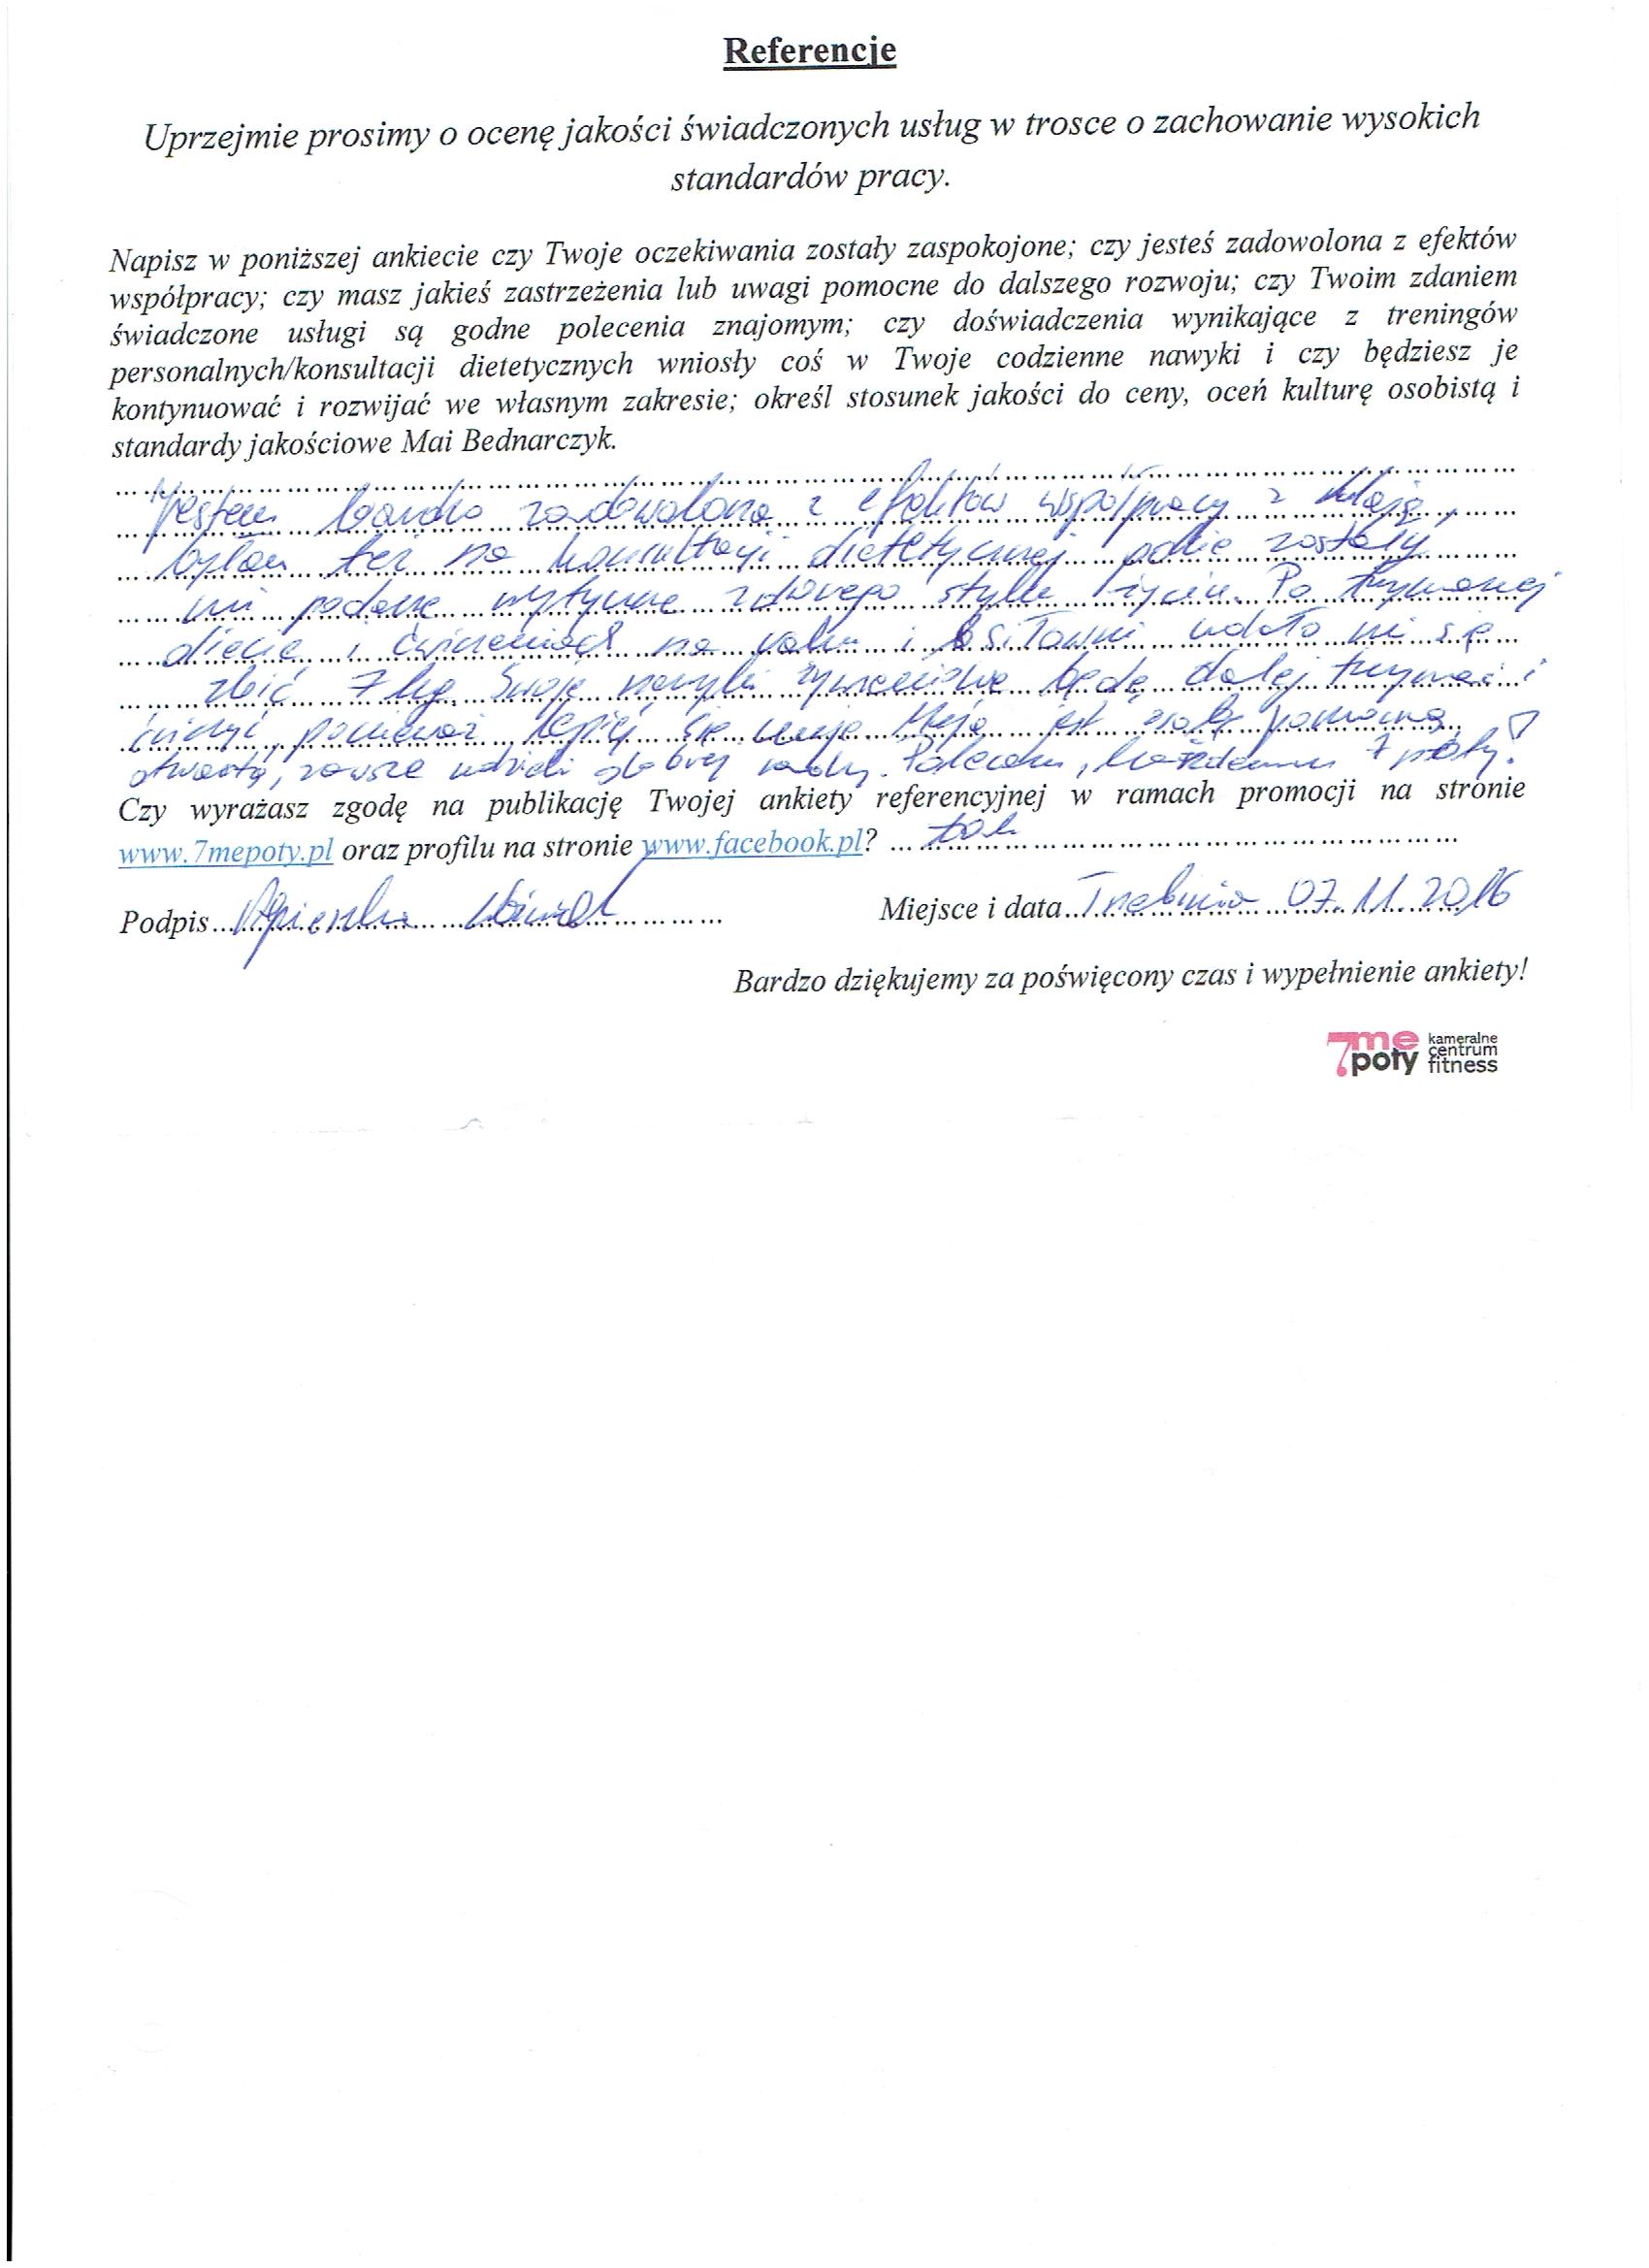 Referencje
Uprzejmie prosimy o ocenę jakości świadczonych usług w trosce o zachowanie wysokich
standardów pracy.
Napisz w poniższej ankiecie czy Twoje oczekiwania zostały zaspokojone; czy jesteś zadowolona z efektów
współpracy; czy masz jakieś zastrzeżenia lub uwagi pomocne do dalszego rozwoju; czy Twoim zdaniem
świadczone usługi są godne polecenia znajomym; czy doświadczenia wynikające z treningów
personalnych/konsultacji dietetycznych wniosły coś w Twoje codzienne nawyki i czy będziesz je
kontynuować i rozwijać we własnym zakresie; określ stosunek jakości do ceny, oceń kulturę osobistą i
standardy jakościowe Mai Bednarczyk.
Jestem bardzo zadowolona z efektów współpracy z Mają,
byłam też na konsultacji dietetycznej gdzie zostały
mi podane wytyczne zdrowego stylu życia. Po trzymanej
diecie i ćwiczeniach na i siłowni udało mi się
zbić 7 kg. Swoje nawyki żywieniowe będę dalej trzymać i
ćwiczyć ponieważ lepiej się czuję. Maja jest osobą pomocną,
otwartą, zawsze udzieli dobrej rady. Polecam, każdemu 7 poty!
Czy wyrażasz zgodę na publikację Twojej ankiety referencyjnej w ramach promocji na stronie
www.7mepoty.pl oraz profilu na stronie www.facebook.pl? tak
Podpis Agnieszka Miejsce i data Trzebinia 07.11.2016
Bardzo dziękujemy za poświęcony czas i wypełnienie ankiety!
7me poty kameralne centrum fitness